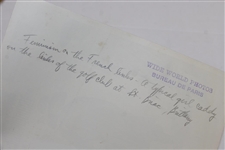 Feminism on the French links. A typical girl caddy
on the links of the golf club at St. Jean, Brittany
WIDE WORLD PHOTOS
BUREAU DE PARIS